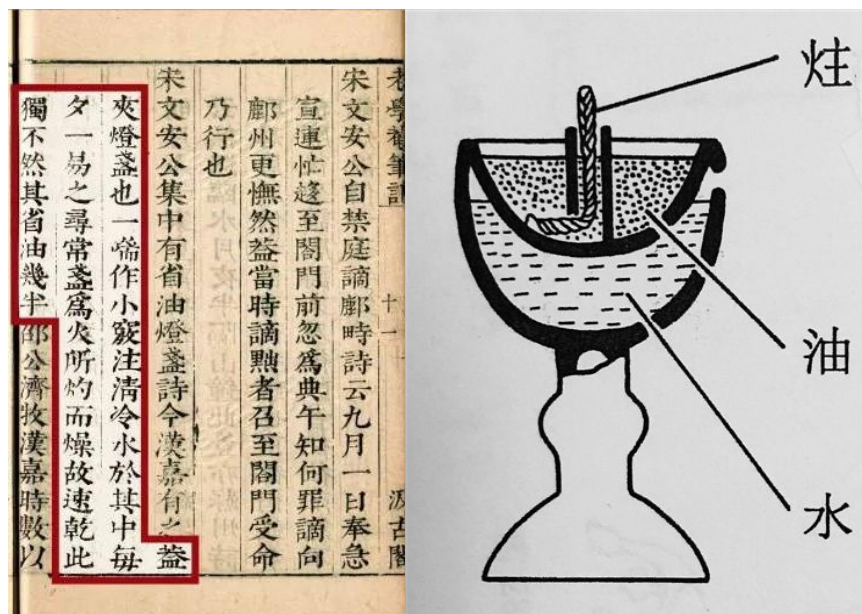 老學菴筆記
汲古閣
宋文安公自禁庭謫鄜時詩云九月一日奉急
宣連忙趨至閤門前忽爲典午知何罪謫向
鄜州更憮然葢當時謫黜者召至閤門受命
乃行也
宋文安公集中有省油燈盞詩今漢嘉有之葢
夾燈盞也一端作小竅注清冷水於其中每
夕一易之尋常盞爲火所灼而燥故速乾此
獨不然其省油幾半邵公濟牧漢嘉時數以
炷
油
水